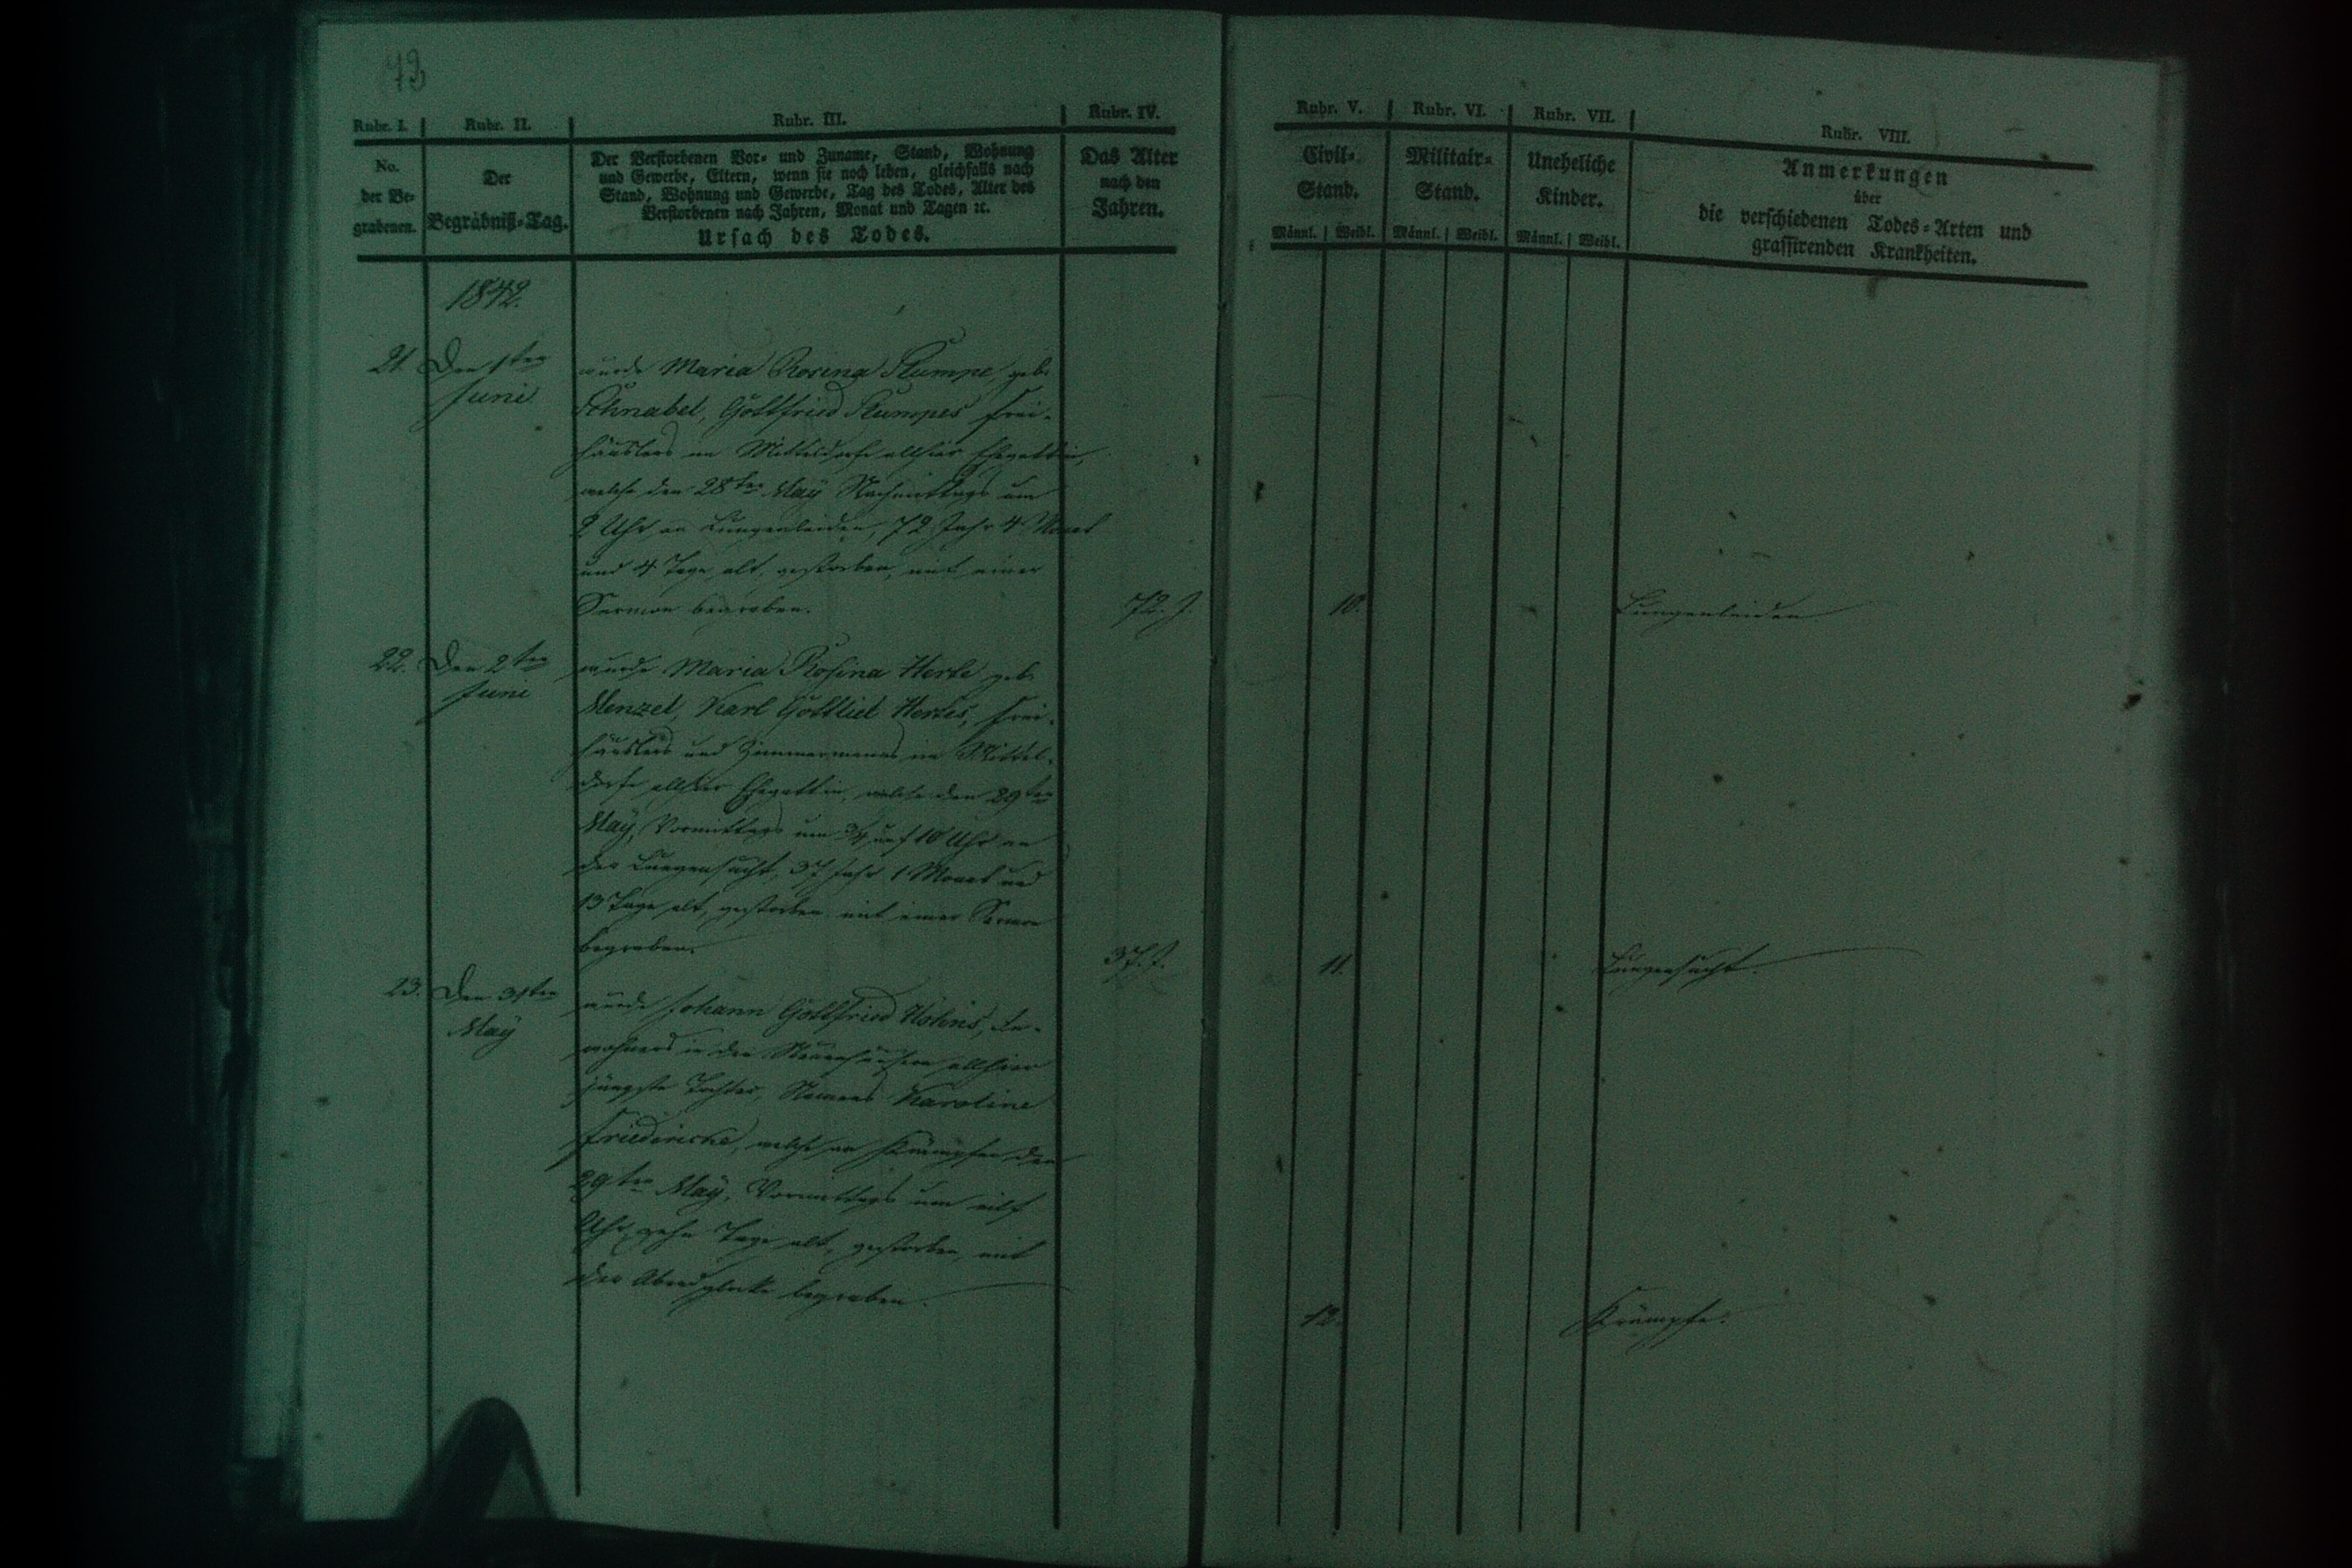 73
Rubr. I. Rubr. II. Rubr. III. Rubr. IV. Rubr. V. Rubr. VI. Rubr. VII. Rubr. VIII.
No. der Be-grabenen.
Der Begräbniß-Tag.
Der Verstorbenen Vor- und Zuname, Stand, Wohnung
und Gewerbe, Eltern, wenn sie noch leben, gleichfalls nach
Stand, Wohnung und Gewerbe, Tag des Todes, Alter des
Verstorbenen nach Jahren, Monat und Tagen ꝛc.
Ursach des Todes.
Das Alter
nach den
Jahren.
Civil-
Stand.
Männl. Weibl.
Militair-
Stand.
Männl. Weibl.
Uneheliche
Kinder.
Männl. Weibl.
Anmerkungen
über
die verschiedenen Todes-Arten und
grassirenden Krankheiten.
1842.
21. Den 1ten
Juni
wurde Maria Rosina Stumpe, geb.
Schnabel, Gottfried Stumpes Frei-
häuslers im Mitteldorfe allhier Ehegattin,
welche den 28ten May Nachmittags um
2 Uhr an Lungenleiden, 72 Jahr 4 Monat
und 4 Tage alt, gestorben, mit einer
Sermon begraben. 72. J. 10. Lungenleiden
22. Den 2ten
Juni
wurde Maria Rosina Herte geb.
Menzel, Karl Gottlieb Hertes, Frei-
häuslers und Zimmermanns im Mittel-
dorfe allhier Ehegattin, welche den 29ten
May, Vormittags um 3/4 auf 10 Uhr an
der Lungensucht, 37 Jahr 1 Monat und
13 Tage alt, gestorben mit einer Sermon
begraben. 37. J. 11. Lungensucht.
23. Den 31ten
May
wurde Johann Gottfried In-
wohners in den Neuenhäusern allhier
jüngste Tochter, Namens Karoline
Friedericke, welche an Krämpfen den
29ten May, Vormittags um eilf
Uhr, zehn Tage alt, gestorben, mit
der Abendglocke begraben. 12. Krämpfe.